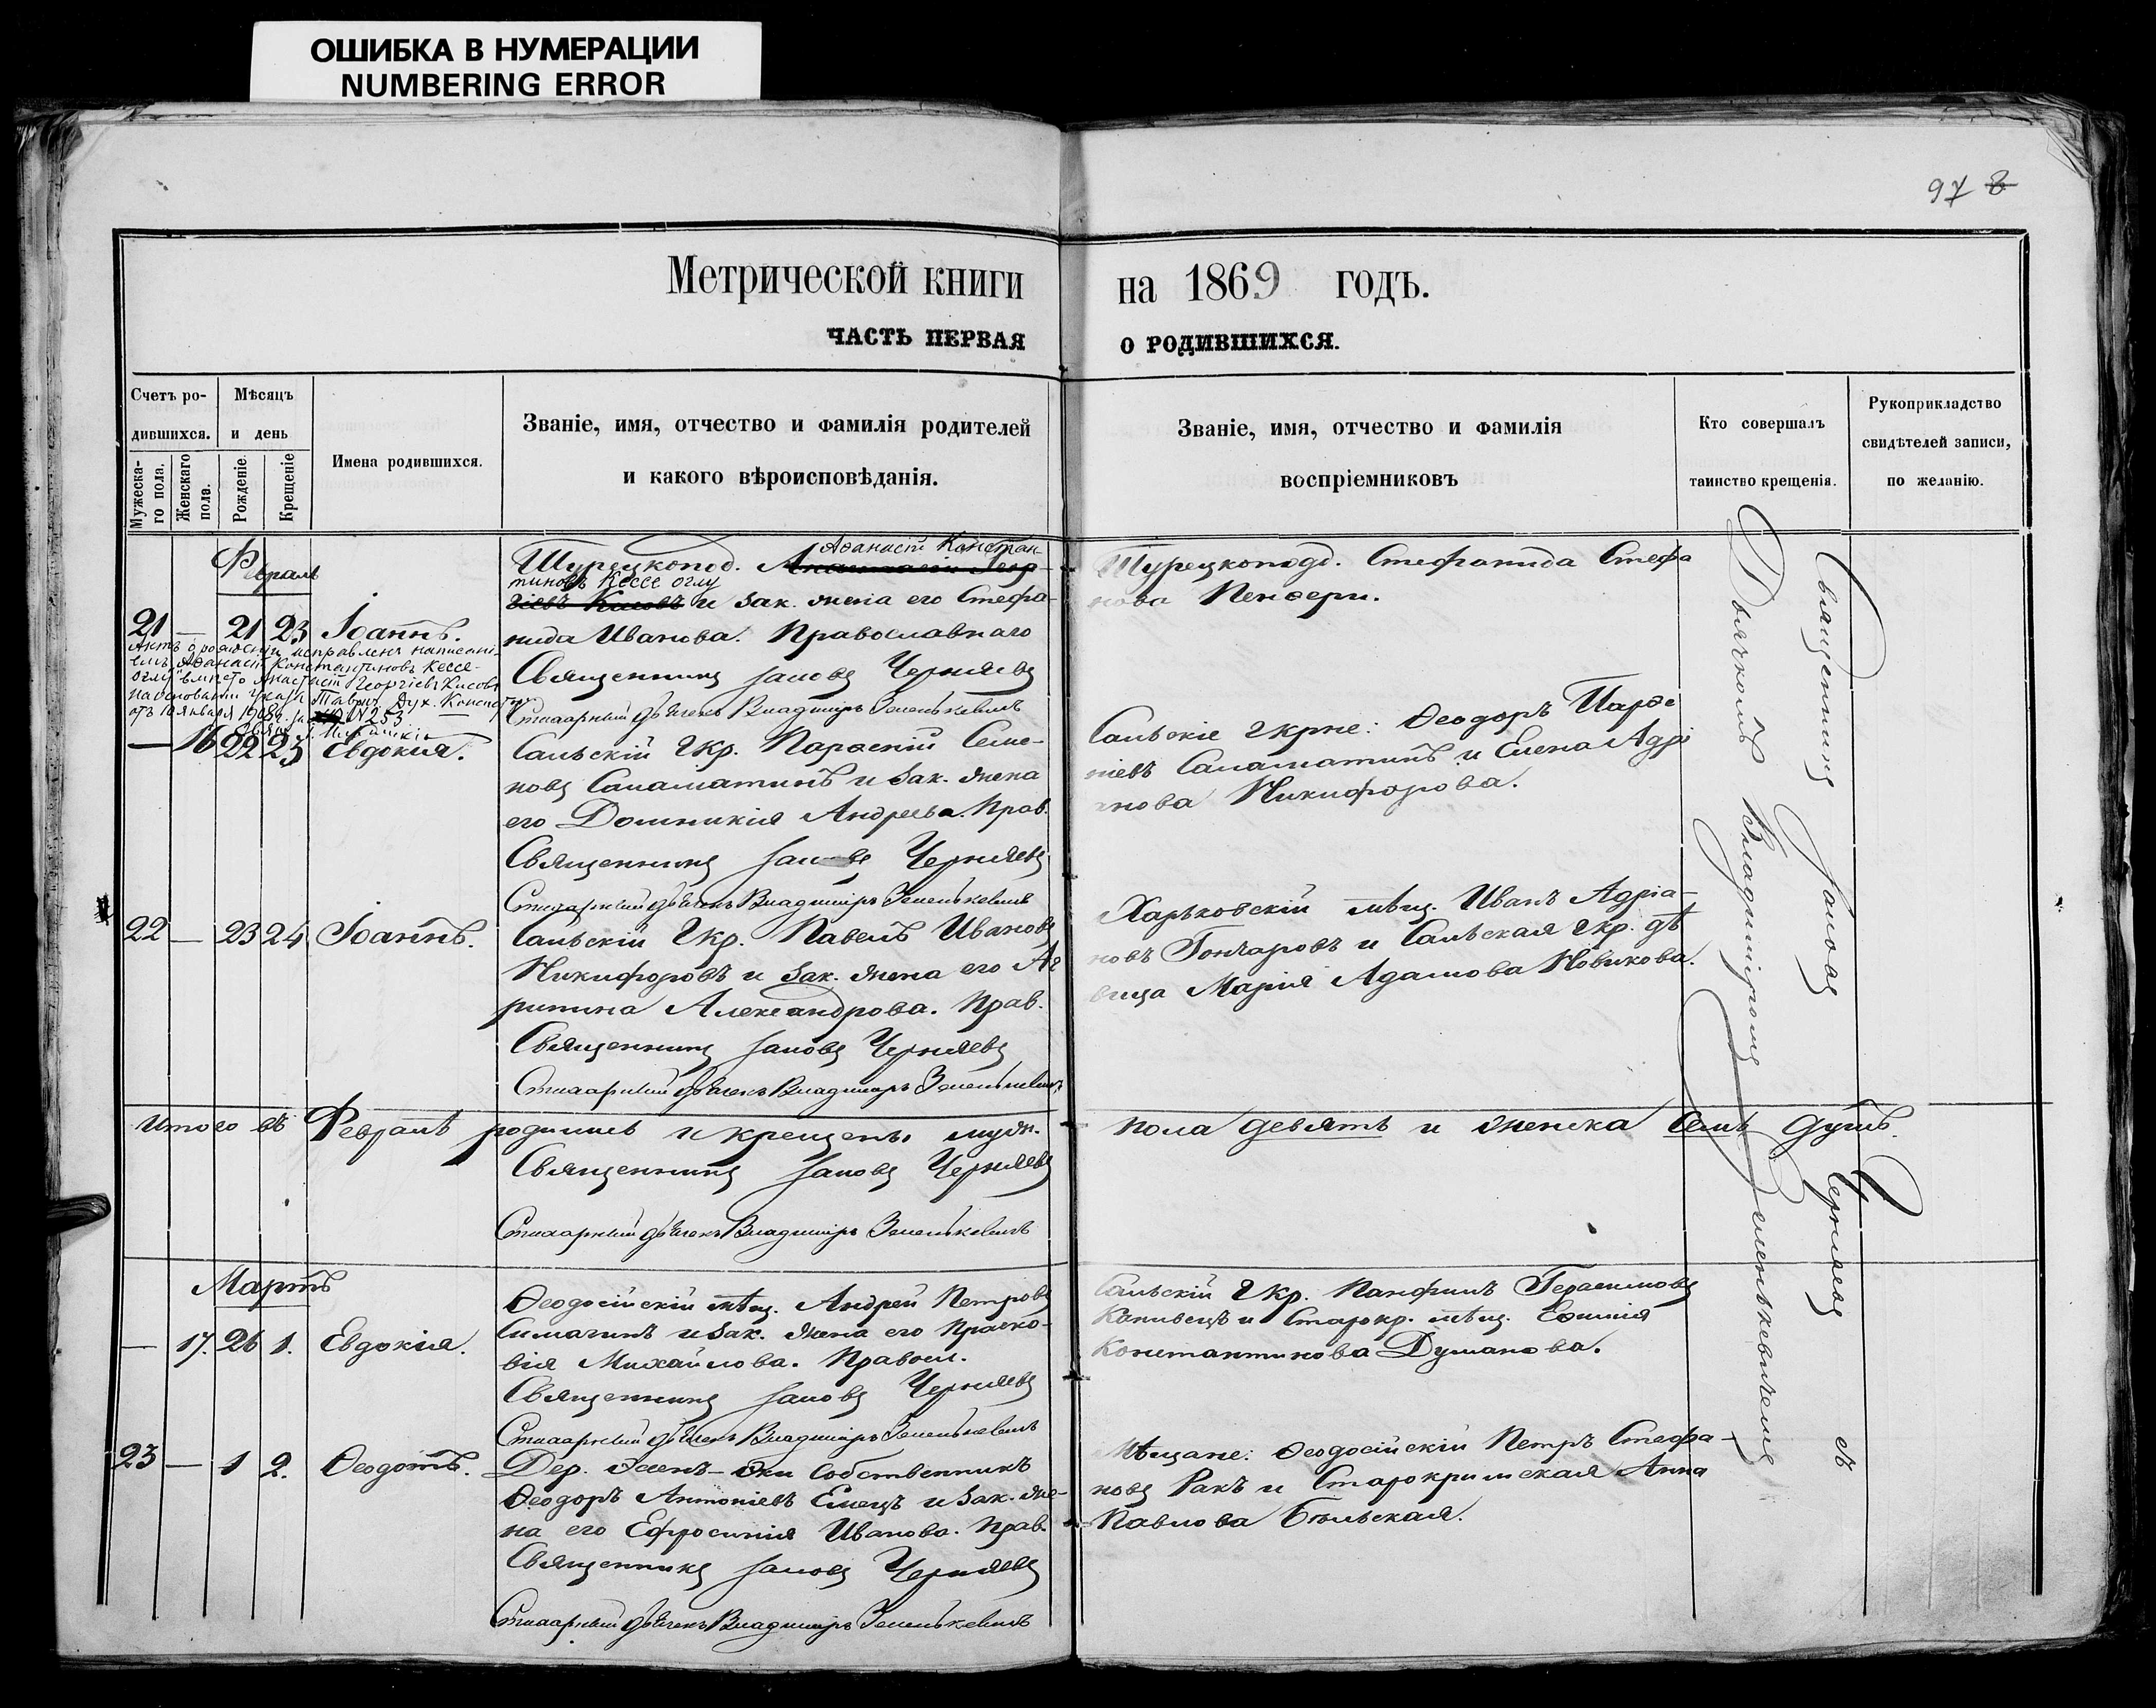 ОШИБКА В НУМЕРАЦИИ
NUMBERING ERROR
97
Метрической книги на 1869 годъ.
ЧАСТЬ ПЕРВАЯ О РОДИВШИХСЯ.
Счетъ ро-
дившихся.
Мѣсяцъ
и день
Мужеска-
го пола.
Женскаго
пола.
Рожденіе.
Крещеніе
Имена родившихся.
Званіе, имя, отчество и фамилія родителей
и какого вѣроисповѣданія.
Званіе, имя, отчество и фамилія
воспріемниковъ
Кто совершалъ
таинство крещенія.
Рукоприкладство
свидѣтелей записи,
по желанію.
Февраль
21 — 21 23 Іоаннъ.
Актъ о рожденіи исправленъ написані-
емъ „Аѳанасій Константиновъ Кессе-
оглу" вмѣсто Анастасій Георгіевъ Кисовъ
на основаніи указа Таврич. Дух. Консист.
отъ 10 января 1908 г. за № 253
Аѳанасій Констан-
Турецкопод. Анастасій Геор-
тиновъ Кессе оглу
гіевъ Кисовъ и зак. жена его Стефа-
нида Иванова. Православнаго
Священникъ Іаковъ Черняевъ
Стихарный дьячекъ Владиміръ Зеленькевичъ
Турецкоподд. Стефанида Стефа
нова Пендери.
— 16 22 23 Евдокія.
Сальскій Г. кр. Парѳеній Семе-
новъ Саламатинъ и зак. жена
его Домникія Андреева. Прав.
Священникъ Іаковъ Черняевъ
Стихарный дьячекъ Владиміръ Зеленькевичъ
Сальскіе Г. крне: Ѳеодоръ Парѳе
ніевъ Саламатинъ и Елена Адрі
анова Никифорова.
22 — 23 24 Іоаннъ.
Сальскій Г. кр. Павелъ Ивановъ
Никифоровъ и зак. жена его Аг
рипина Александрова. Прав.
Священникъ Іаковъ Черняевъ
Стихарный дьячекъ Владиміръ Зеленькевичъ
Харьковскій мѣщ. Иванъ Адріа-
новъ Гончаровъ и Сальская Г. кр. дѣ
вица Марія Адамова Новикова.
Итого въ Февралѣ родились и крещены муж. пола девять и женска семь душъ.
Священникъ Іаковъ Черняевъ
Стихарный дьячекъ Владиміръ Зеленькевичъ
Мартъ
— 17. 26 1. Евдокія.
Ѳеодосійскій мѣщ. Андрей Петровъ
Симагинъ и зак. жена его Праско-
вія Михайлова. Правосл.
Священникъ Іаковъ Черняевъ
Стихарный дьячекъ Владиміръ Зеленькевичъ
Сальскій Г. кр. Панфилъ Герасимовъ
Капивецъ и Старокр. мѣщ.
Константинова Думанова.
23 — 1 2. Ѳеодотъ.
Дер. Эсенъ-Эки собственникъ
Ѳеодоръ Антоніевъ Емецъ и зак. же-
на его Ефросинія Иванова. Прав.
Священникъ Іаковъ Черняевъ
Стихарный дьячекъ Владиміръ Зеленькевичъ
Мѣщане: Ѳеодосійскій Петръ Стефа-
новъ Ракъ и Старокрымская Анна
Павлова Бѣльская.
Священникъ Іаковъ Черняевъ съ
Дьячкомъ Владиміромъ Зеленькевичемъ